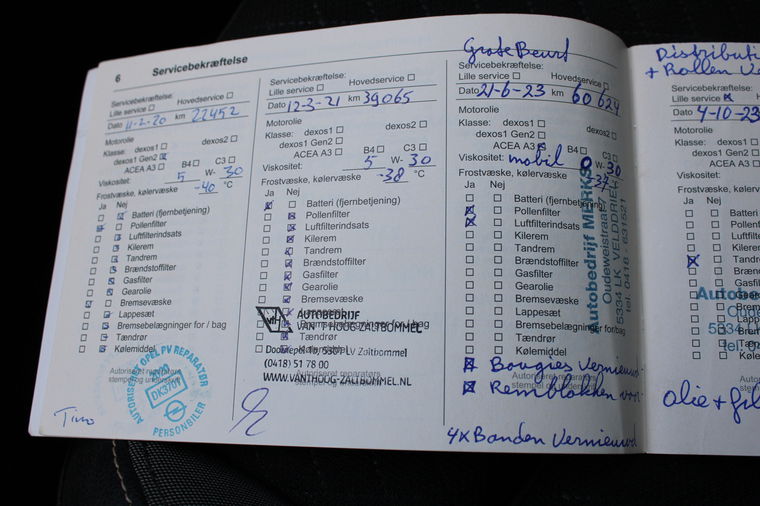 6 Servicebekræftelse
Servicebekræftelse:
Lille service ☐ Hovedservice ☐
Dato 11-2-20 km 22452
Motorolie
Klasse: dexos1 ☐ dexos2 ☐
dexos1 Gen2 ☒
ACEA A3 ☐ B4 ☐ C3 ☐
Viskositet: 5 W- 30
Frostvæske, kølervæske -40 °C
Ja Nej
Batteri (fjernbetjening)
Pollenfilter
Luftfilterindsats
Kilerem
Tandrem
Brændstoffilter
Gasfilter
Gearolie
Bremsevæske
Lappesæt
Bremsebelægninger for / bag
Tændrør
Kølemiddel
Autoriseret reparatørs
stempel og underskrift
AUTORISERET OPEL PV REPARATØR
DK3701
PERSONBILER
Servicebekræftelse:
Lille service ☐ Hovedservice ☐
Dato 12-3-21 km 39065
Motorolie
Klasse: dexos1 ☐ dexos2 ☐
dexos1 Gen2 ☐
ACEA A3 ☐ B4 ☐ C3 ☐
Viskositet: 5 W- 30
Frostvæske, kølervæske -38 °C
Ja Nej
Batteri (fjernbetjening)
Pollenfilter
Luftfilterindsats
Kilerem
Tandrem
Brændstoffilter
Gasfilter
Gearolie
Bremsevæske
Bremsebelægninger for / bag
Tændrør
AUTOBEDRIJF
VAN HOOG-ZALTBOMMEL
LV Zaltbommel
(0418) 51 78 00
WWW.VANTHOOG-ZALTBOMMEL.NL
Autoriseret reparatørs
stempel og underskrift
Grote Beurt
Servicebekræftelse:
Lille service ☐ Hovedservice ☐
Dato 21-6-23 km 60624
Motorolie
Klasse: dexos1 ☐ dexos2 ☐
dexos1 Gen2 ☐
ACEA A3 B4 ☐ C3 ☐
Viskositet: mobil 0 W- 30
Frostvæske, kølervæske -37
Ja Nej
Batteri (fjernbetjening)
Pollenfilter
Luftfilterindsats
Kilerem
Tandrem
Brændstoffilter
Gasfilter
Gearolie
Bremsevæske
Lappesæt
Bremsebelægninger for/bag
Tændrør
Kølemiddel
Autoriseret
stempel og
Bougies Vernieuwd
Remblokken voor
4x Banden Vernieuwd
Autobedrijf MERKS
Oudeweistraat
5334 LK VELDDRIEL
tel. 0418 - 631521
Distributi
+ Rollen Ve
Servicebekræftelse:
Lille service ☒
Dato 4-10-23
Motorolie
Klasse: dexos1 ☐
dexos1 Gen2 ☐
ACEA A3 ☐
Viskositet:
Frostvæske, kølervæske
Ja Nej
Batte
Pollen
Luftfilt
Kilere
Tandre
Brænd
Gasfil
Autobe
Oude
5334
tel.
Autoriseret
stempel og
olie + fil